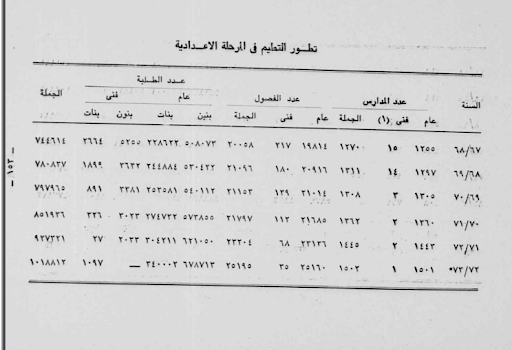 تطور التعليم فى المرحلة الاعدادية
السنة عدد المدارس عدد الفصول عدد الطلبة الجملة
عام فنى
عام فنى (١) الجملة عام فنى الجملة بنين بنات بنون بنات
٦٨/٦٧ ١٢٥٥ ١٥ ١٢٧٠ ١٩٨١٤ ٢١٧ ٢٠٠٥٨ ٥٠٨٠٧٣ ٢٢٨٦٢٢ ٥٢٥٥ ٢٦٦٤ ٧٤٤٦١٤
٦٩/٦٨ ١٢٩٧ ١٤ ١٣١١ ٢٠٩١٦ ١٨٠ ٢١٠٩٦ ٥٣٠٤٢٢ ٢٤٤٨٨٤ ٣٦٣٢ ١٨٩٩ ٧٨٠٨٣٧
٧٠/٦٩ ١٣٠٥ ٣ ١٣٠٨ ٢١٠١٤ ١٣٩ ٢١١٥٣ ٥٤٠١١٢ ٢٥٣٥٨١ ٣٣٨١ ٨٩١ ٧٩٧٩٦٥
٧١/٧٠ ١٣٦٠ ٢ ١٣٦٢ ٢١٦٨٥ ١١٢ ٢١٧٩٧ ٥٧٣٨٥٥ ٢٧٤٧٣٢ ٣٠٢٣ ٣٢٦ ٨٥١٩٣٦
٧٢/٧١ ١٤٤٣ ٢ ١٤٤٥ ٢٣١٣٦ ٦٨ ٢٣٢٠٤ ٦٢١٠٥٠ ٣٠٤٢١١ ٢٠٣٣ ٢٧ ٩٢٧٣٢١
٧٣/٧٢* ١٥٠١ ١ ١٥٠٢ ٢٥١٦٠ ٣٥ ٢٥١٩٥ ٦٧٨٧١٣ ٣٤٠٠٠٢ — ١٠٩٧ ١٠١٨٨١٢
— ١٥٣ —